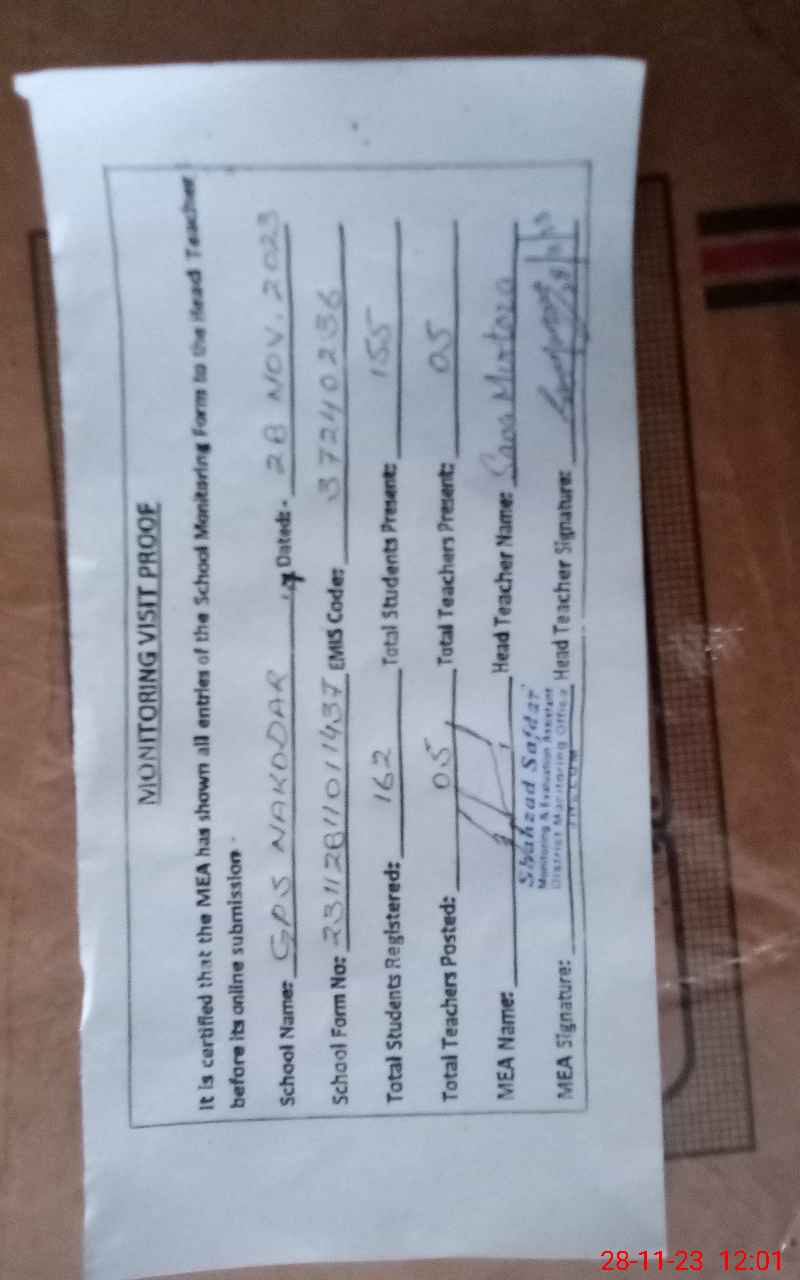 MONITORING VISIT PROOF
It is certified that the MEA has shown all entries of the School Monitoring Form to the Head Teacher
before its online submission
School Name: GPS NAKODAR Dated: - 28 NOV. 2023
School Form No: 23112811011437 EMIS Code: 37240236
Total Students Registered: 162 Total Students Present: 155
Total Teachers Posted: 05 Total Teachers Present: 05
MEA Name: Head Teacher Name: Sana Murtaza
Shahzad Safdar
Monitoring & Evaluation Assistant
District Monitoring Office
MEA Signature: Head Teacher Signature:
28-11-23 12:01